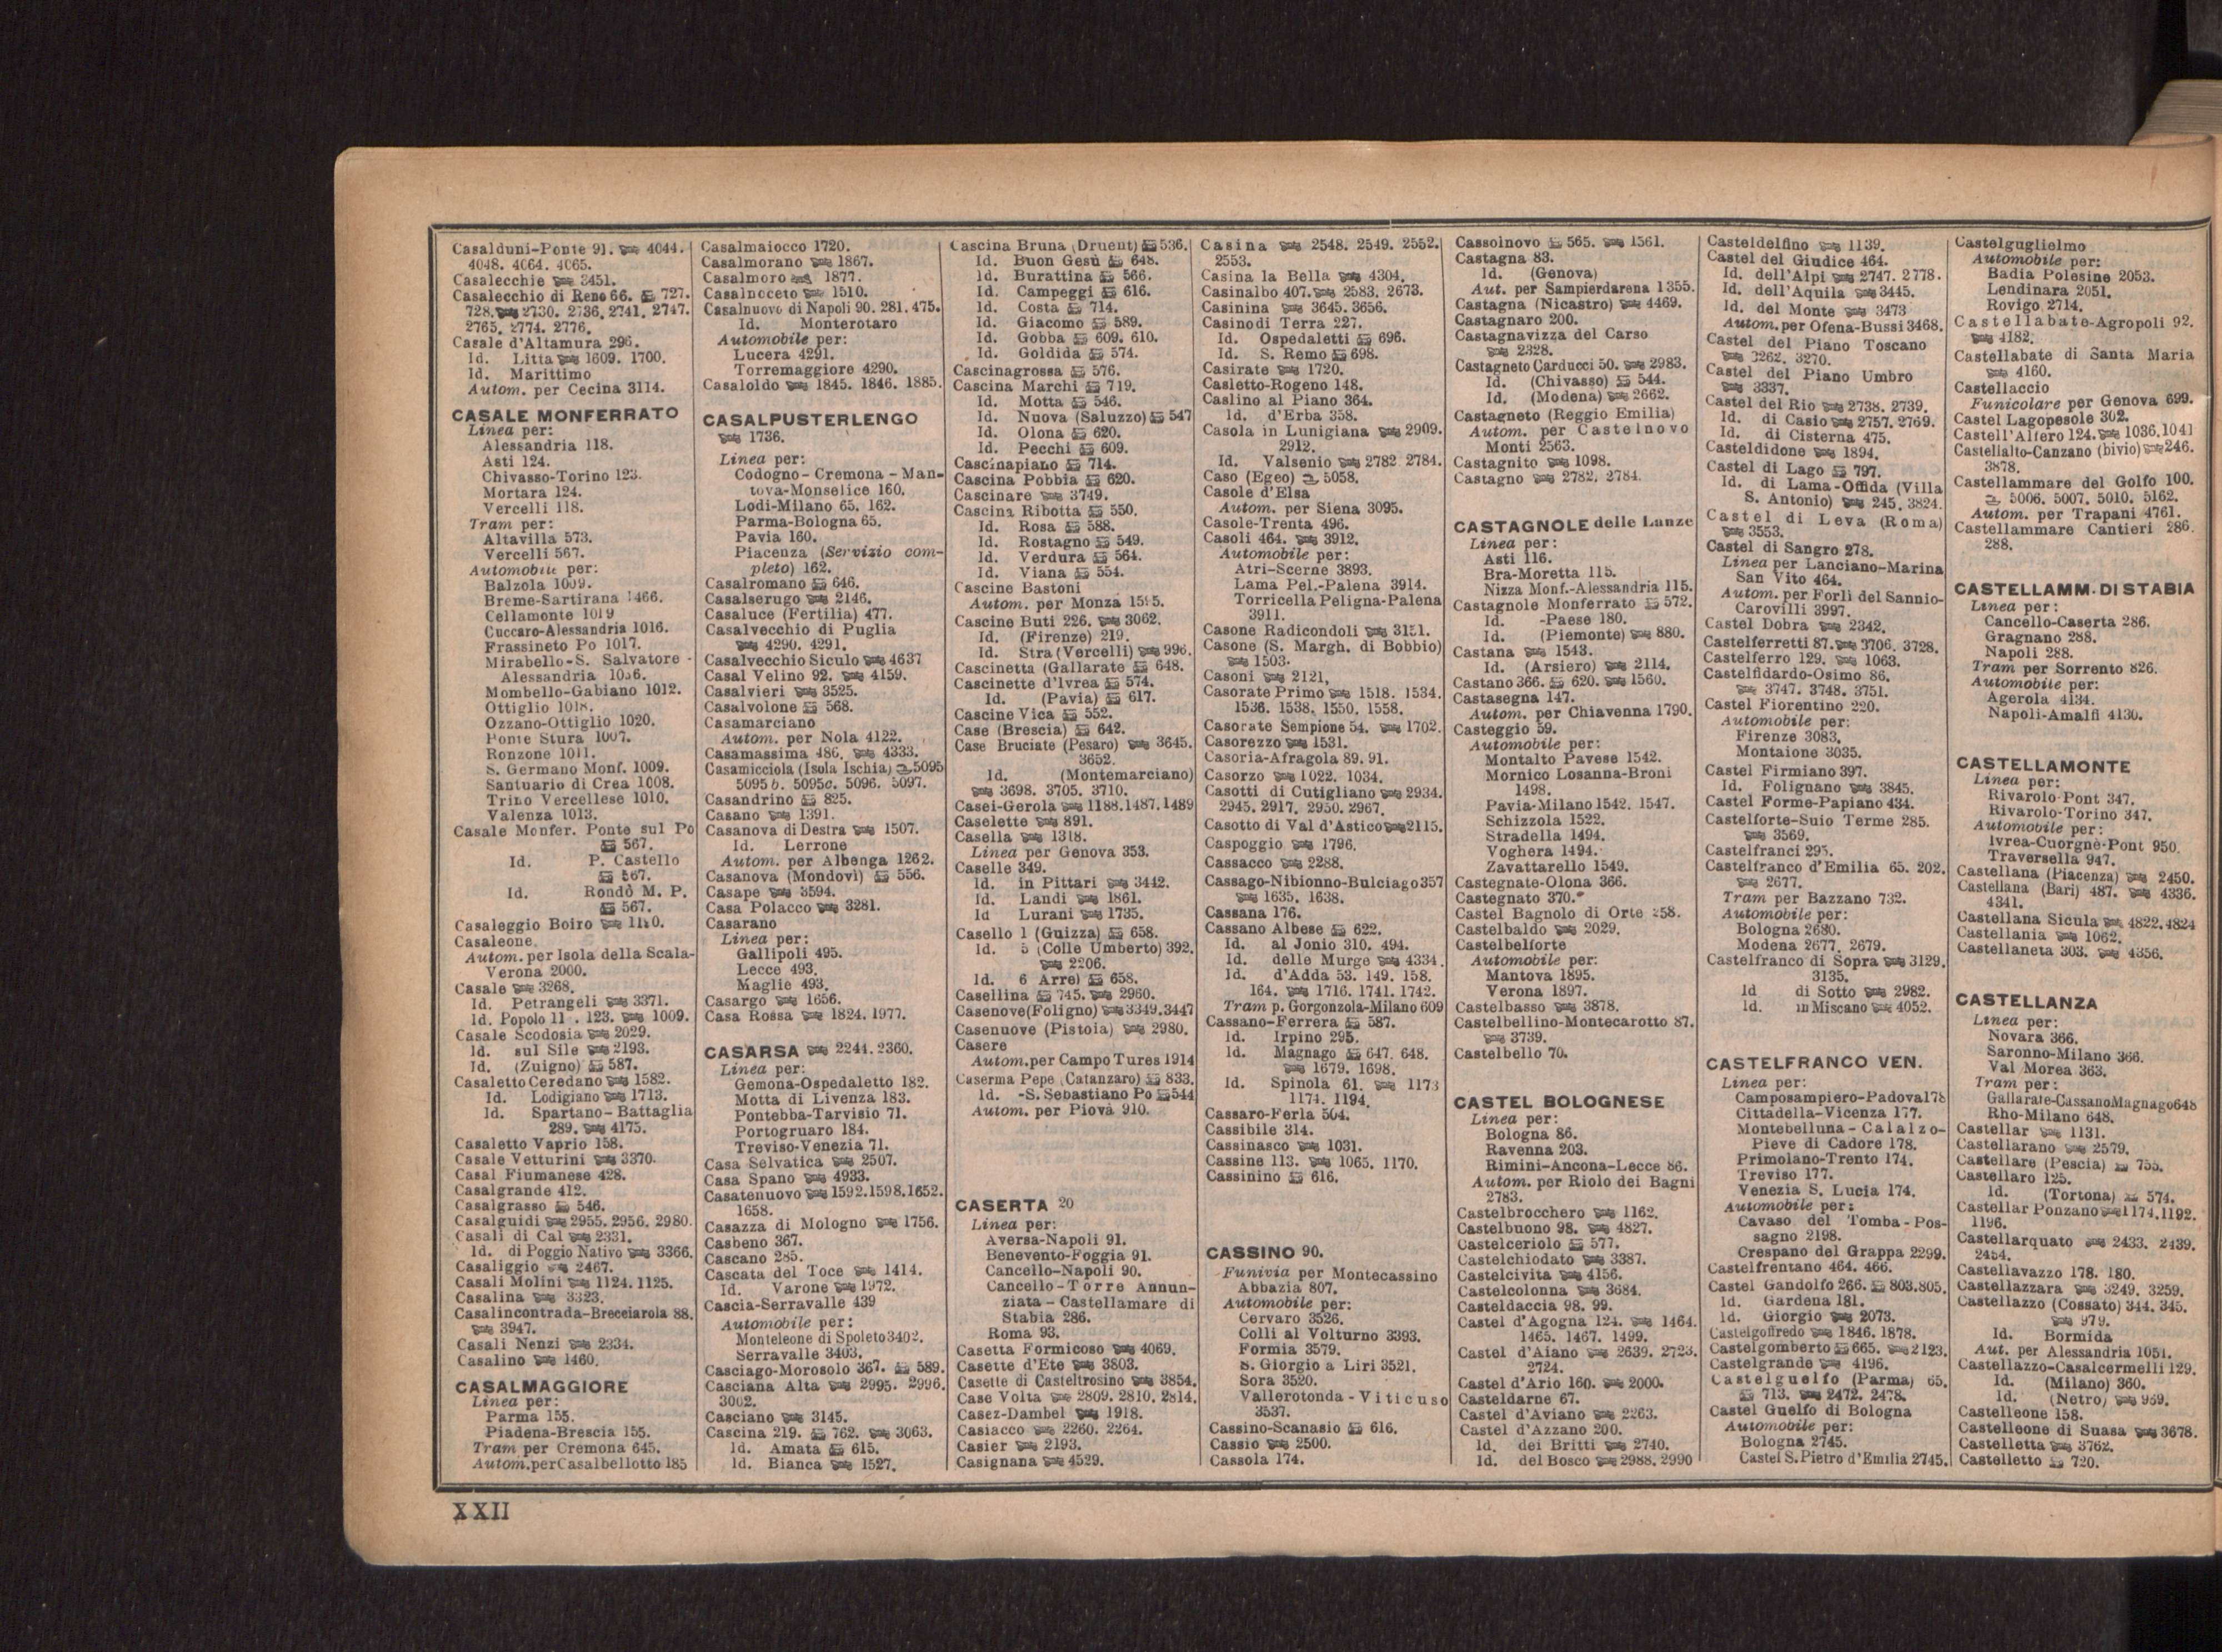 Casalduni-Ponte 91. 4044.
4048. 4064. 4065.
Casalecchie 3451.
Casalecchio di Reno 66. 727.
728. 2730. 2736. 2741. 2747.
2765. 2774. 2776.
Casale d'Altamura 296.
Id. Litta 1609. 1700.
Id. Marittimo
Autom. per Cecina 3114.
CASALE MONFERRATO
Linea per:
Alessandria 118.
Asti 124.
Chivasso-Torino 123.
Mortara 124.
Vercelli 118.
Tram per:
Altavilla 573.
Vercelli 567.
Automobile per:
Balzola 1009.
Breme-Sartirana 1466.
Cellamonte 1019
Cuccaro-Alessandria 1016.
Frassineto Po 1017.
Mirabello-S. Salvatore -
Alessandria
Mombello-Gabiano 1012.
Ottiglio 1018.
Ozzano-Ottiglio 1020.
Ponte Stura 1007.
Ronzone 1011.
S. Germano Monf. 1009.
Santuario di Crea 1008.
Trino Vercellese 1010.
Valenza 1013.
Casale Monfer. Ponte sul Po
567.
Id. P. Castello
567.
Id. Rondò M. P.
567.
Casaleggio Boiro
Casaleone
Autom. per Isola della Scala-
Verona 2000.
Casale 3268.
Id. Petrangeli 3371.
Id. Popolo 123. 1009.
Casale Scodosia 2029.
Id. sul Sile 2193.
Id. (Zuigno) 587.
Casaletto Ceredano 1582.
Id. Lodigiano 1713.
Id. Spartano-Battaglia
289. 4175.
Casaletto Vaprio 158.
Casale Vetturini 3370.
Casal Fiumanese 428.
Casalgrande 412.
Casalgrasso 546.
Casalguidi 2955. 2956. 2980.
Casali di Cal 2331.
Id. di Poggio Nativo 3366.
Casaliggio 2467.
Casali Molini 1124. 1125.
Casalina 3323.
Casalincontrada-Brecciarola 88.
3947.
Casali Nenzi 2334.
Casalino 1460.
CASALMAGGIORE
Linea per:
Parma 155.
Piadena-Brescia 155.
Tram per Cremona 645.
Autom. per Casalbellotto 185
Casalmaiocco 1720.
Casalmorano 1867.
Casalmoro 1877.
Casalnoceto 1510.
Casalnuovo di Napoli 90. 281. 475.
Id. Monterotaro
Automobile per:
Lucera 4291.
Torremaggiore 4290.
Casaloldo 1845. 1846. 1885.
CASALPUSTERLENGO
1736.
Linea per:
Codogno-Cremona-Man-
tova-Monselice 160.
Lodi-Milano 65. 162.
Parma-Bologna 65.
Pavia 160.
Piacenza (Servizio com-
pleto) 162.
Casalromano 646.
Casalserugo 2146.
Casaluce (Fertilia) 477.
Casalvecchio di Puglia
4290. 4291.
Casalvecchio Siculo 4637
Casal Velino 92. 4159.
Casalvieri 3525.
Casalvolone 568.
Casamarciano
Autom. per Nola 4122.
Casamassima 486. 4333.
Casamicciola (Isola Ischia) 5095
5095 b. 5095c. 5096. 5097.
Casandrino 825.
Casano 1391.
Casanova di Destra 1507.
Id. Lerrone
Autom. per Albenga 1262.
Casanova (Mondovì) 556.
Casape 3594.
Casa Polacco 3281.
Casarano
Linea per:
Gallipoli 495.
Lecce 493.
Maglie 493.
Casargo 1656.
Casa Rossa 1824. 1977.
CASARSA 2241. 2360.
Linea per:
Gemona-Ospedaletto 182.
Motta di Livenza 183.
Pontebba-Tarvisio 71.
Portogruaro 184.
Treviso-Venezia 71.
Casa Selvatica 2507.
Casa Spano 4933.
Casatenuovo 1592. 1598. 1652.
1658.
Casazza di Mologno 1756.
Casbeno 367.
Cascano 285.
Cascata del Toce 1414.
Id. Varone 1972.
Cascia-Serravalle 439
Automobile per:
Monteleone di Spoleto 3402.
Serravalle 3403.
Casciago-Morosolo 367. 589.
Casciana Alta 2995. 2996.
3002.
Casciano 3145.
Cascina 219. 762. 3063.
Id. Amata 615.
Id. Bianca 1527.
Cascina Bruna (Druent) 536.
Id. Buon Gesù 648.
Id. Burattina 566.
Id. Campeggi 616.
Id. Costa 714.
Id. Giacomo 589.
Id. Gobba 609. 610.
Id. Goldida 574.
Cascinagrossa 576.
Cascina Marchi 719.
Id. Motta 546.
Id. Nuova (Saluzzo) 547
Id. Olona 620.
Id. Pecchi 609.
Cascinapiano 714.
Cascina Pobbia 620.
Cascinare 3749.
Cascina Ribotta 550.
Id. Rosa 588.
Id. Rostagno 549.
Id. Verdura 564.
Id. Viana 554.
Cascine Bastoni
Autom. per Monza
Cascine Buti 226. 3062.
Id. (Firenze) 219.
Id. Stra (Vercelli) 996.
Cascinetta (Gallarate 648.
Cascinette d'Ivrea 574.
Id. (Pavia) 617.
Cascine Vica 552.
Case (Brescia) 642.
Case Bruciate (Pesaro) 3645.
3652.
Id. (Montemarciano)
3698. 3705. 3710.
Casei-Gerola 1188. 1487. 1489
Caselette 891.
Casella 1318.
Linea per Genova 353.
Caselle 349.
Id. in Pittari 3442.
Id. Landi 1861.
Id Lurani 1735.
Casello 1 (Guizza) 658.
Id. 5 (Colle Umberto) 392.
2206.
Id. 6 Arrel 658.
Casellina 745. 2960.
Casenove (Foligno) 3349. 3447
Casenuove (Pistoia) 2980.
Casere
Autom. per Campo Tures 1914
Caserma Pepe (Catanzaro) 833.
Id. -S. Sebastiano Po 544
Autom. per Piovà 910.
CASERTA 20
Linea per:
Aversa-Napoli 91.
Benevento-Foggia 91.
Cancello-Napoli 90.
Cancello-Torre Annun-
ziata-Castellamare di
Stabia 286.
Roma 93.
Casetta Formicoso 4069.
Casette d'Ete 3803.
Casette di Casteltrosino 3854.
Case Volta 2809. 2810. 2814.
Casez-Dambel 1918.
Casiacco 2260. 2264.
Casier 2193.
Casignana 4529.
Casina 2548. 2549. 2552.
2553.
Casina la Bella 4304.
Casinalbo 407. 2583. 2673.
Casinina 3645. 3656.
Casino di Terra 227.
Id. Ospedaletti 696.
Id. S. Remo 698.
Casirate 1720.
Casletto-Rogeno 148.
Caslino al Piano 364.
Id. d'Erba 358.
Casola in Lunigiana 2909.
2912.
Id. Valsenio 2782. 2784.
Caso (Egeo) 5058.
Casole d'Elsa
Autom. per Siena 3095.
Casole-Trenta 496.
Casoli 464. 3912.
Automobile per:
Atri-Scerne 3893.
Lama Pel.-Palena 3914.
Torricella Peligna-Palena
3911.
Casone Radicondoli 3151.
Casone (S. Margh. di Bobbio)
1503.
Casoni 2121.
Casorate Primo 1518. 1534.
1536. 1538. 1550. 1558.
Casorate Sempione 54. 1702.
Casorezzo 1531.
Casoria-Afragola 89. 91.
Casorzo 1022. 1034.
Casotti di Cutigliano 2934.
2945. 2917. 2950. 2967.
Casotto di Val d'Astico 2115.
Caspoggio 1796.
Cassacco 2288.
Cassago-Nibionno-Bulciago 357
1635. 1638.
Cassana 176.
Cassano Albese 622.
Id. al Jonio 310. 494.
Id. delle Murge 4334.
Id. d'Adda 53. 149. 158.
164. 1716. 1741. 1742.
Tram p. Gorgonzola-Milano 609
Cassano-Ferrera 587.
Id. Irpino 295.
Id. Magnago 647. 648.
1679. 1698.
Id. Spinola 61. 1173
1174. 1194.
Cassaro-Ferla 504.
Cassibile 314.
Cassinasco 1031.
Cassine 113. 1065. 1170.
Cassinino 616.
CASSINO 90.
Funivia per Montecassino
Abbazia 807.
Automobile per:
Cervaro 3526.
Colli al Volturno 3393.
Formia 3579.
S. Giorgio a Liri 3521.
Sora 3520.
Vallerotonda-Viticuso
3537.
Cassino-Scanasio 616.
Cassio 2500.
Cassola 174.
Cassolnovo 565. 1561.
Castagna 83.
Id. (Genova)
Aut. per Sampierdarena 1355.
Castagna (Nicastro) 4469.
Castagnaro 200.
Castagnavizza del Carso
2328.
Castagneto Carducci 50. 2983.
Id. (Chivasso) 544.
Id. (Modena) 2662.
Castagneto (Reggio Emilia)
Autom. per Castelnovo
Monti 2563.
Castagnito 1098.
Castagno 2782. 2784.
CASTAGNOLE delle Lanze
Linea per:
Asti 116.
Bra-Moretta 115.
Nizza Monf.-Alessandria 115.
Castagnole Monferrato 572.
Id. -Paese 180.
Id. (Piemonte) 880.
Castana 1543.
Id. (Arsiero) 2114.
Castano 366. 620. 1560.
Castasegna 147.
Autom. per Chiavenna 1790.
Casteggio 59.
Automobile per:
Montalto Pavese 1542.
Mornico Losanna-Broni
1498.
Pavia-Milano 1542. 1547.
Schizzola 1522.
Stradella 1494.
Voghera 1494.
Zavattarello 1549.
Castegnate-Olona 366.
Castegnato 370.
Castel Bagnolo di Orte 258.
Castelbaldo 2029.
Castelbelforte
Automobile per:
Mantova 1895.
Verona 1897.
Castelbasso 3878.
Castelbellino-Montecarotto 87.
3739.
Castelbello 70.
CASTEL BOLOGNESE
Linea per:
Bologna 86.
Ravenna 203.
Rimini-Ancona-Lecce 86.
Autom. per Riolo dei Bagni
2783.
Castelbrocchero 1162.
Castelbuono 98. 4827.
Castelceriolo 577.
Castelchiodato 3387.
Castelcivita 4156.
Castelcolonna 3684.
Casteldaccia 98. 99.
Castel d'Agogna 124. 1464.
1465. 1467. 1499.
Castel d'Aiano 2639. 2723.
2724.
Castel d'Ario 160. 2000.
Casteldarne 67.
Castel d'Aviano 2263.
Castel d'Azzano 200.
Id. dei Britti 2740.
Id. del Bosco 2988. 2990
Casteldelfino 1139.
Castel del Giudice 464.
Id. dell'Alpi 2747. 2778.
Id. dell'Aquila 3445.
Id. del Monte 3473
Autom. per Ofena-Bussi 3468.
Castel del Piano Toscano
3262. 3270.
Castel del Piano Umbro
3337.
Castel del Rio 2738. 2739.
Id. di Casio 2757. 2769.
Id. di Cisterna 475.
Casteldidone 1894.
Castel di Lago 797.
Id. di Lama-Offida (Villa
S. Antonio) 245. 3824.
Castel di Leva (Roma)
3553.
Castel di Sangro 278.
Linea per Lanciano-Marina
San Vito 464.
Autom. per Forlì del Sannio-
Carovilli 3997.
Castel Dobra 2342.
Castelferretti 87. 3706. 3728.
Castelferro 129. 1063.
Castelfidardo-Osimo 86.
3747. 3748. 3751.
Castel Fiorentino 220.
Automobile per:
Firenze 3083.
Montaione 3035.
Castel Firmiano 397.
Id. Folignano 3845.
Castel Forme-Papiano 434.
Castelforte-Suio Terme 285.
3569.
Castelfranci 295.
Castelfranco d'Emilia 65. 202.
2677.
Tram per Bazzano 732.
Automobile per:
Bologna 2680.
Modena 2677. 2679.
Castelfranco di Sopra 3129.
3135.
Id di Sotto 2982.
Id. in Miscano 4052.
CASTELFRANCO VEN.
Linea per:
Camposampiero-Padova 178
Cittadella-Vicenza 177.
Montebelluna-Calalzo-
Pieve di Cadore 178.
Primolano-Trento 174.
Treviso 177.
Venezia S. Lucia 174.
Automobile per:
Cavaso del Tomba-Pos-
sagno 2198.
Crespano del Grappa 2299.
Castelfrentano 464. 466.
Castel Gandolfo 266. 803. 805.
Id. Gardena 181.
Id. Giorgio 2073.
Castelgoffredo 1846. 1878.
Castelgomberto 665. 2123.
Castelgrande 4196.
Castelguelfo (Parma) 65.
713. 2472. 2478.
Castel Guelfo di Bologna
Automobile per:
Bologna 2745.
Castel S. Pietro d'Emilia 2745.
Castelguglielmo
Automobile per:
Badia Polesine 2053.
Lendinara 2051.
Rovigo 2714.
Castellabate-Agropoli 92.
4182.
Castellabate di Santa Maria
4160.
Castellaccio
Funicolare per Genova 699.
Castel Lagopesole 302.
Castell'Alfero 124. 1036. 1041
Castellalto-Canzano (bivio) 246.
3878.
Castellammare del Golfo 100.
5006. 5007. 5010. 5162.
Autom. per Trapani 4761.
Castellammare Cantieri 286.
288.
CASTELLAMM. DI STABIA
Linea per:
Cancello-Caserta 286.
Gragnano 288.
Napoli 288.
Tram per Sorrento 826.
Automobile per:
Agerola 4134.
Napoli-Amalfi 4130.
CASTELLAMONTE
Linea per:
Rivarolo-Pont 347.
Rivarolo-Torino 347.
Automobile per:
Ivrea-Cuorgnè-Pont 950.
Traversella 947.
Castellana (Piacenza) 2450.
Castellana (Bari) 487. 4336.
4341.
Castellana Sicula 4822. 4824
Castellania 1062.
Castellaneta 303. 4356.
CASTELLANZA
Linea per:
Novara 366.
Saronno-Milano 366.
Val Morea 363.
Tram per:
Gallarate-Cassano Magnago 648
Rho-Milano 648.
Castellar 1131.
Castellarano 2579.
Castellare (Pescia) 755.
Castellaro 125.
Id. (Tortona) 574.
Castellar Ponzano 1174. 1192.
1196.
Castellarquato 2433. 2439.
2454.
Castellavazzo 178. 180.
Castellazzara 3249. 3259.
Castellazzo (Cossato) 344. 345.
979.
Id. Bormida
Aut. per Alessandria 1051.
Castellazzo-Casalcermelli 129.
Id. (Milano) 360.
Id. (Netro) 969.
Castelleone 158.
Castelleone di Suasa 3678.
Castelletta 3762.
Castelletto 720.
XXII